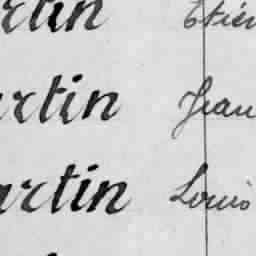 rtin Étien
artin Jean
artin Louis